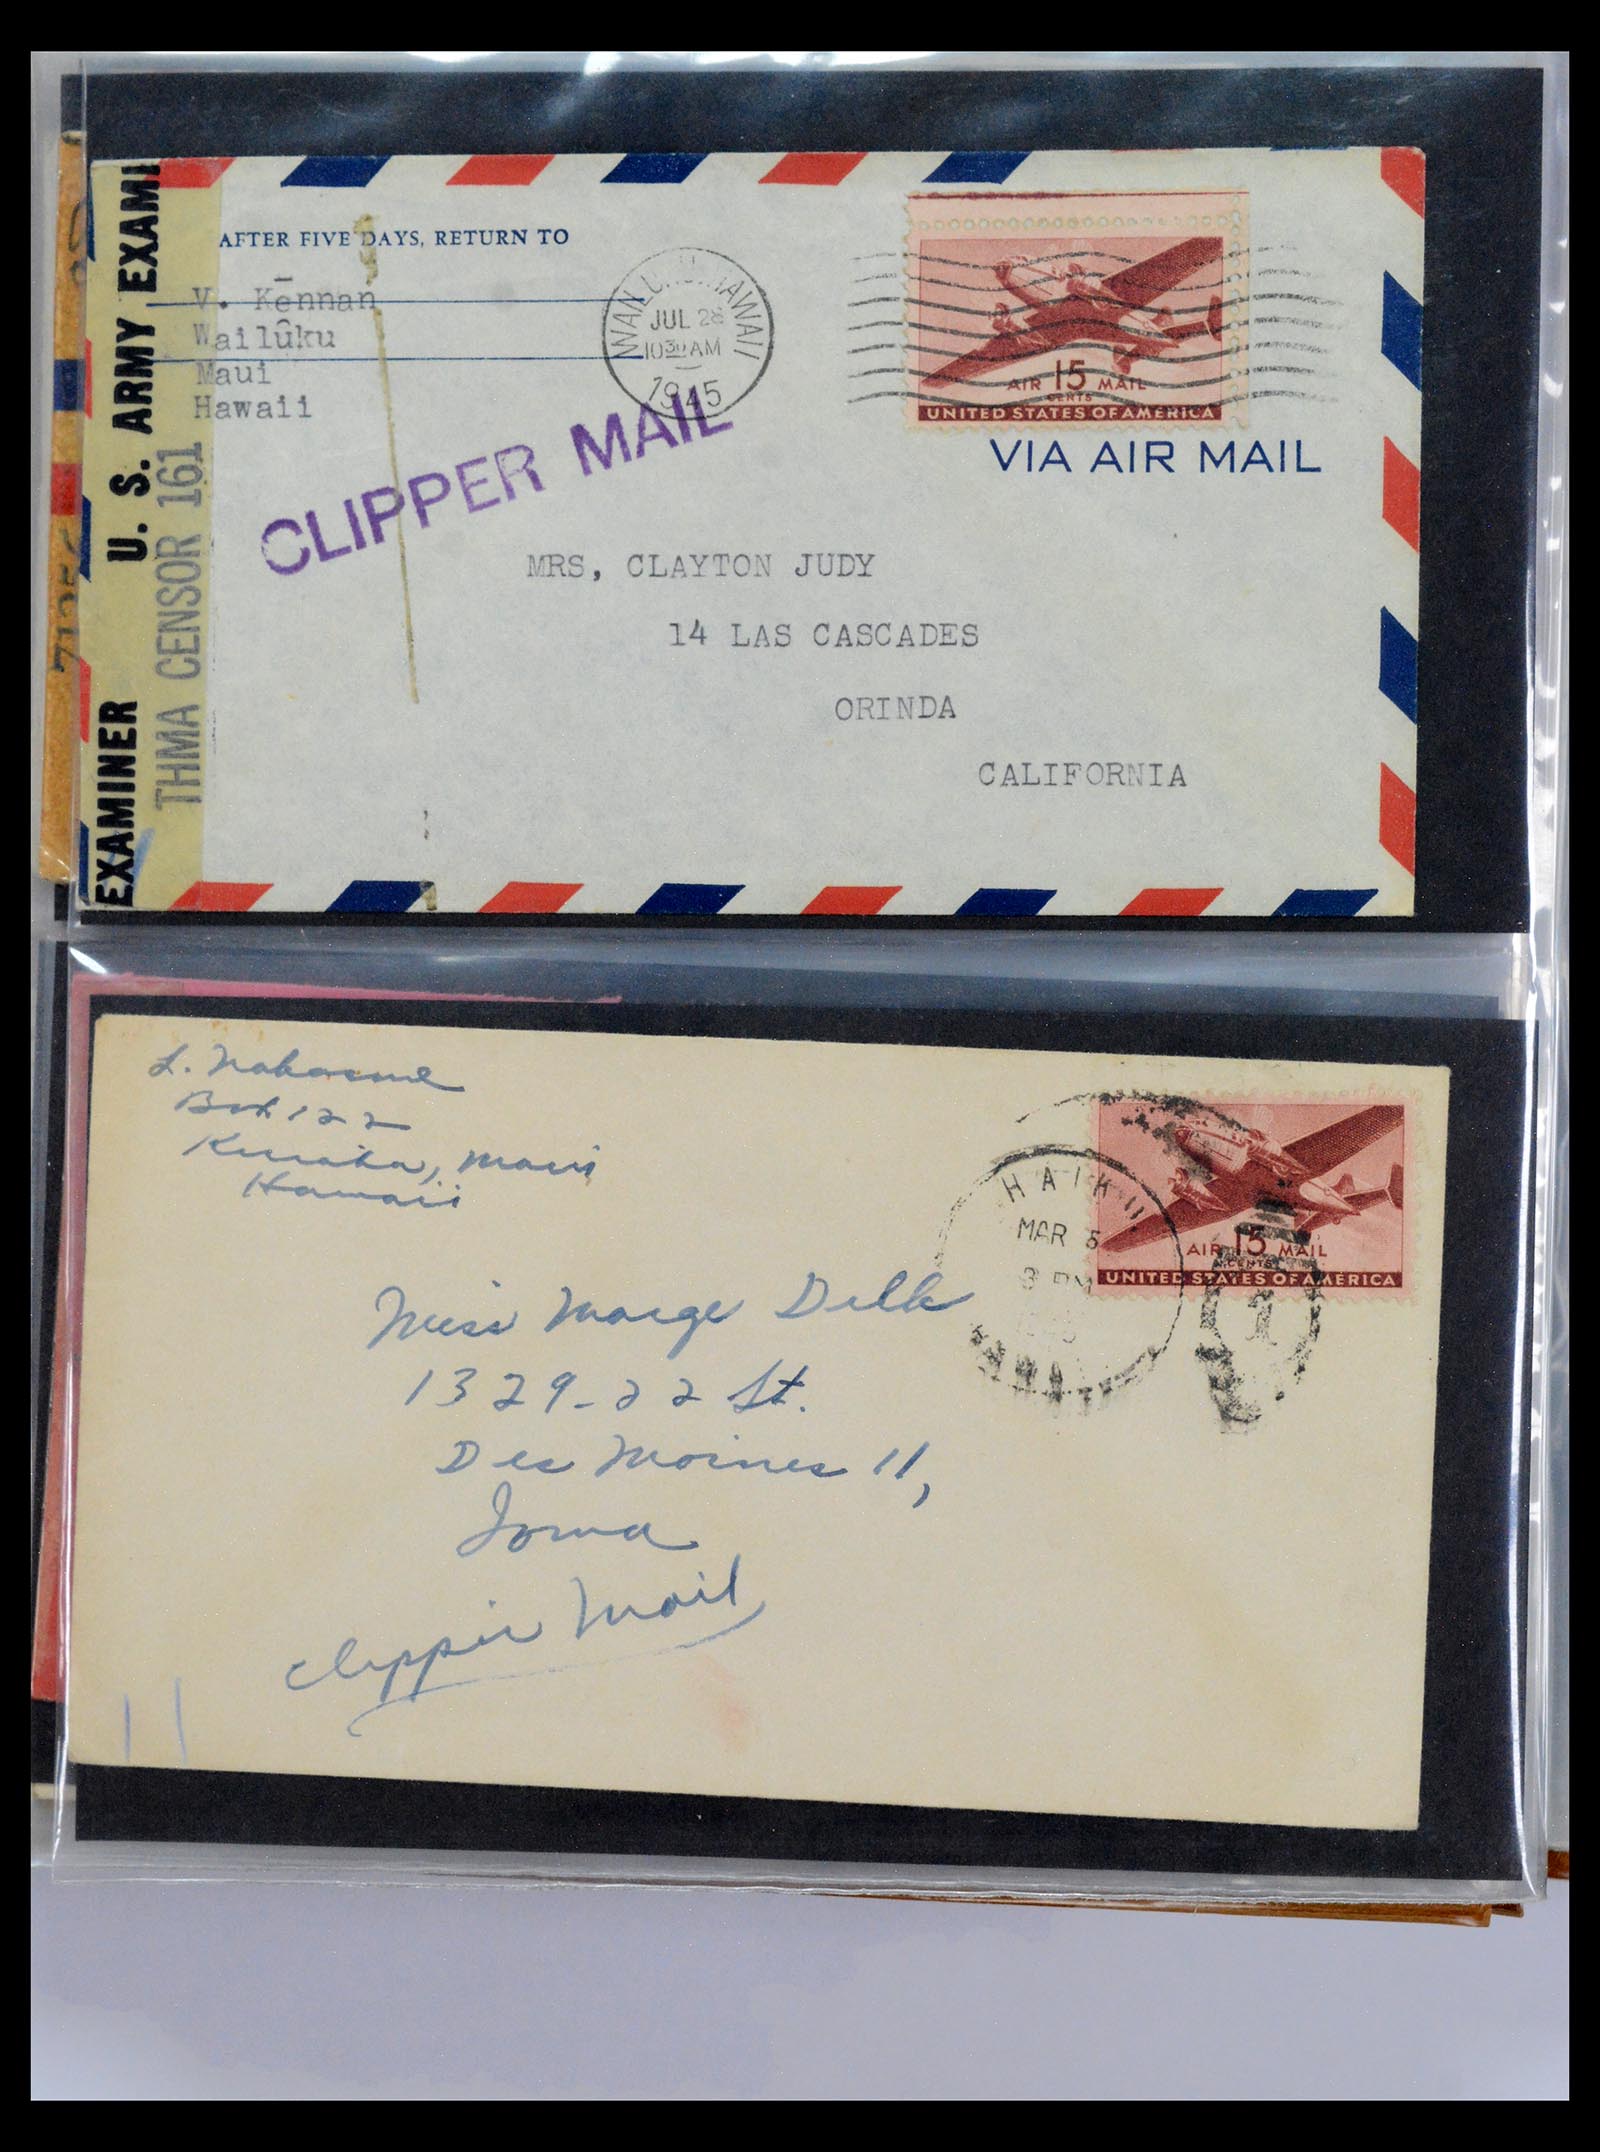 U. S. ARMY EXAMI
EXAMINER
THMA CENSOR 161
AFTER FIVE DAYS, RETURN TO
V. Kēnnan
Wailûku
Maui
Hawaii
WAILUKU. HAWAII
JUL 28
10 30 AM
1945
AIR 15 MAIL
CENTS
UNITED STATES OF AMERICA
VIA AIR MAIL
CLIPPER MAIL
MRS, CLAYTON JUDY
14 LAS CASCADES
ORINDA
CALIFORNIA
Box 122
Kuiaha, Maui
Hawaii
HAIKU
MAR 5
3 PM
AIR 15 MAIL
CENTS
UNITED STATES OF AMERICA
Miss Marge Dilk
1329-22 St.
Des Moines 11,
Iowa
Clipper Mail
11